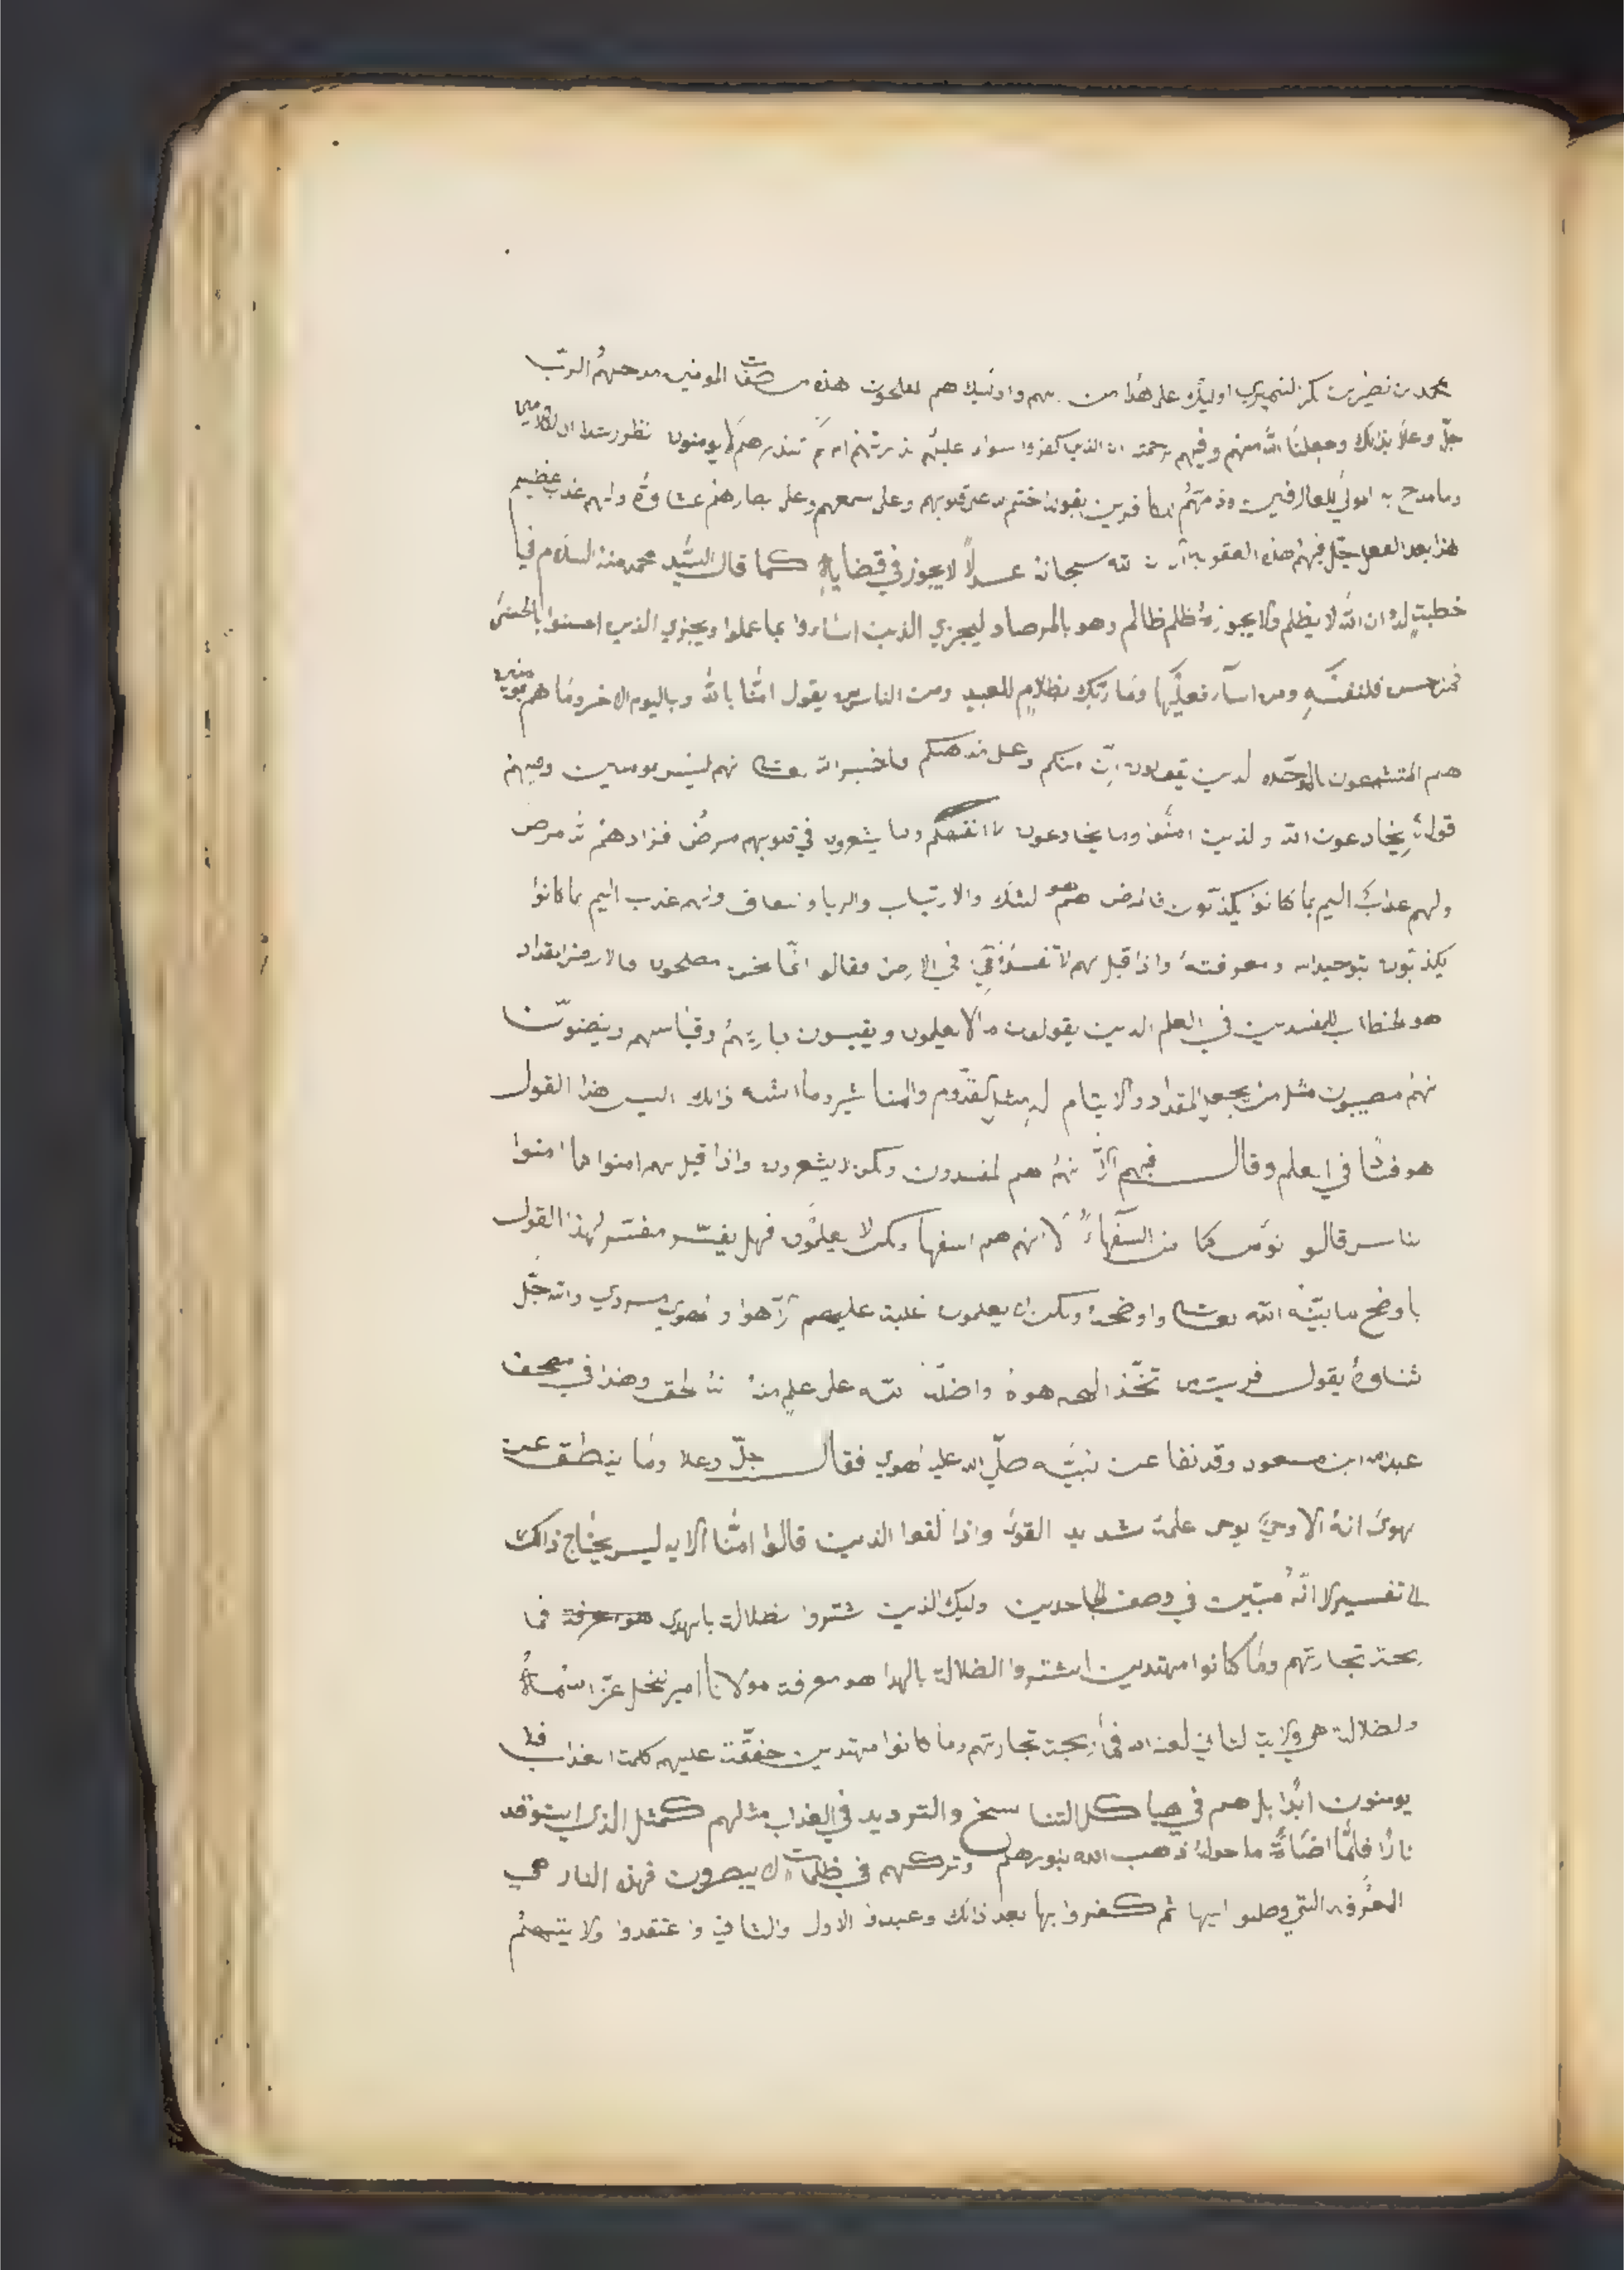 محمد بن نضير بن بكر النميري اوليك على هدا من ربهم واوليك هم لمفلحون هذه من صفت المومنين مدحهم الربّ
جلّ وعلا بذالك وجعلنا الله منهم وفيهم برحمته ان الذين كفروا سواء عليهم نذرتهم ام لم تنذرهم لا يومنون
وما مدح به المولى للعارفين وذمهم الكافرين بقوله ختم الله على قلوبهم وعلى سمعهم وعلى بصارهم غشاوة ولهم عذب عظيم
هذا بعد الفعل جل فيهم هذه العقوبة لله سبحانه عدلاً لا يجوز في قضاياه كما قال السيد محمد منه السلام في
خطبتٍ له ان الله لا يظلم ولا يجوزه ظلم ظالم وهو بالمرصاد ليجزي الذين اساءوا بما عملوا ويجزي الذين احسنوا بالحسنى
فمن حسن فلنفسه ومن اسآء فعليها وما ربّك بظلامٍ للعبيد ومن الناس من يقول امنّا بالله وباليوم الاخر وما هم بمومنين
هم المتشيعون بالموحّده لدين يقولون انّ منكم وعلى مذهبكم فاخبر الله تعالى نهم ليس بمومنين وفيهم
قوله يخادعون الله ولذين امنو وما يخادعون لا انفسهم وما يشعرون في قلوبهم مرضٌ فزادهم الله مرض
ولهم عذابٌ اليم بما كانو يكذّبون فالمرض هو لشك والارتياب والريا ونفاق ولهم عذب اليم بما كانوا
يكذبون بتوحيد الله ومعرفته واذا قيل لهم لا تفسدو في الارض فقالو انما نحن مصلحون فالارض المقداد
هو لخطاب للمفسدين في العلم الدين يقولون ما لا يعلمون ويقيسون برايهم وقياسهم ويضنون
نهم مصيبون مثل من يجعل المقداد والايتام له مثل القدّوم والمناشير وما اشبه ذالك اليس هذا القول
هو فسادٌ في العلم وقال فيهم الا نهم هم لمفسدون ولكن لا يشعرون واذا قيل لهم امنوا كما امنوا
ناس قالو نومن كما من السفهاء الا انهم هم اسفها ولكن لا يعلمون فهل يفسّر مفسّر لهذا القول
باوضح ما بيّنه الله تعالى واوضحه ولكن لا يعلمون غلبة عليهم الاهوا والهوى مردي والله جلّ
ثناوه يقول فريت من تخّذ الهه هوه واضله لله على علم منه بالحق وهذا في مصحف
عبدالله ابن مسعود وقد نفا عن نبيّه صلّى الله عليه الهوى فقال جلّ وعلا وما ينطق عن
لهوى انه الا وحيٌ يوحى علمه شديد القوى واذا لقوا الذين قالوا امنّا الايه ليس يحتاج ذالك
الى تفسير لا انه مبيّن في وصف الجاحدين وليك الذين شتروا لضلالة بالهدى فما
ربحت تجارتهم وما كانوا مهتدين اشتروا الضلالة بالهدا هو معرفة مولانا امير نحل عزّ اسمه
ولضلالة هي ولاية لثاني لعنه الله فما ربحت تجارتهم وما كانوا مهتدين حققت عليهم كلمة العذاب فلا
يومنون ابدًا بل هم في هياكل التناسخ والترديد في العذاب مثلهم كمثل الذي استوقد
نارًا فلمّا اضاءة ما حوله ذهب الله بنورهم وتركهم في ظلمات لا يبصرون فهذه النار هي
المعرفه التي وصلوا اليها ثم كفروا بها بعد ذالك وعبدو الاول والثاني واعتقدوا ولايتهم